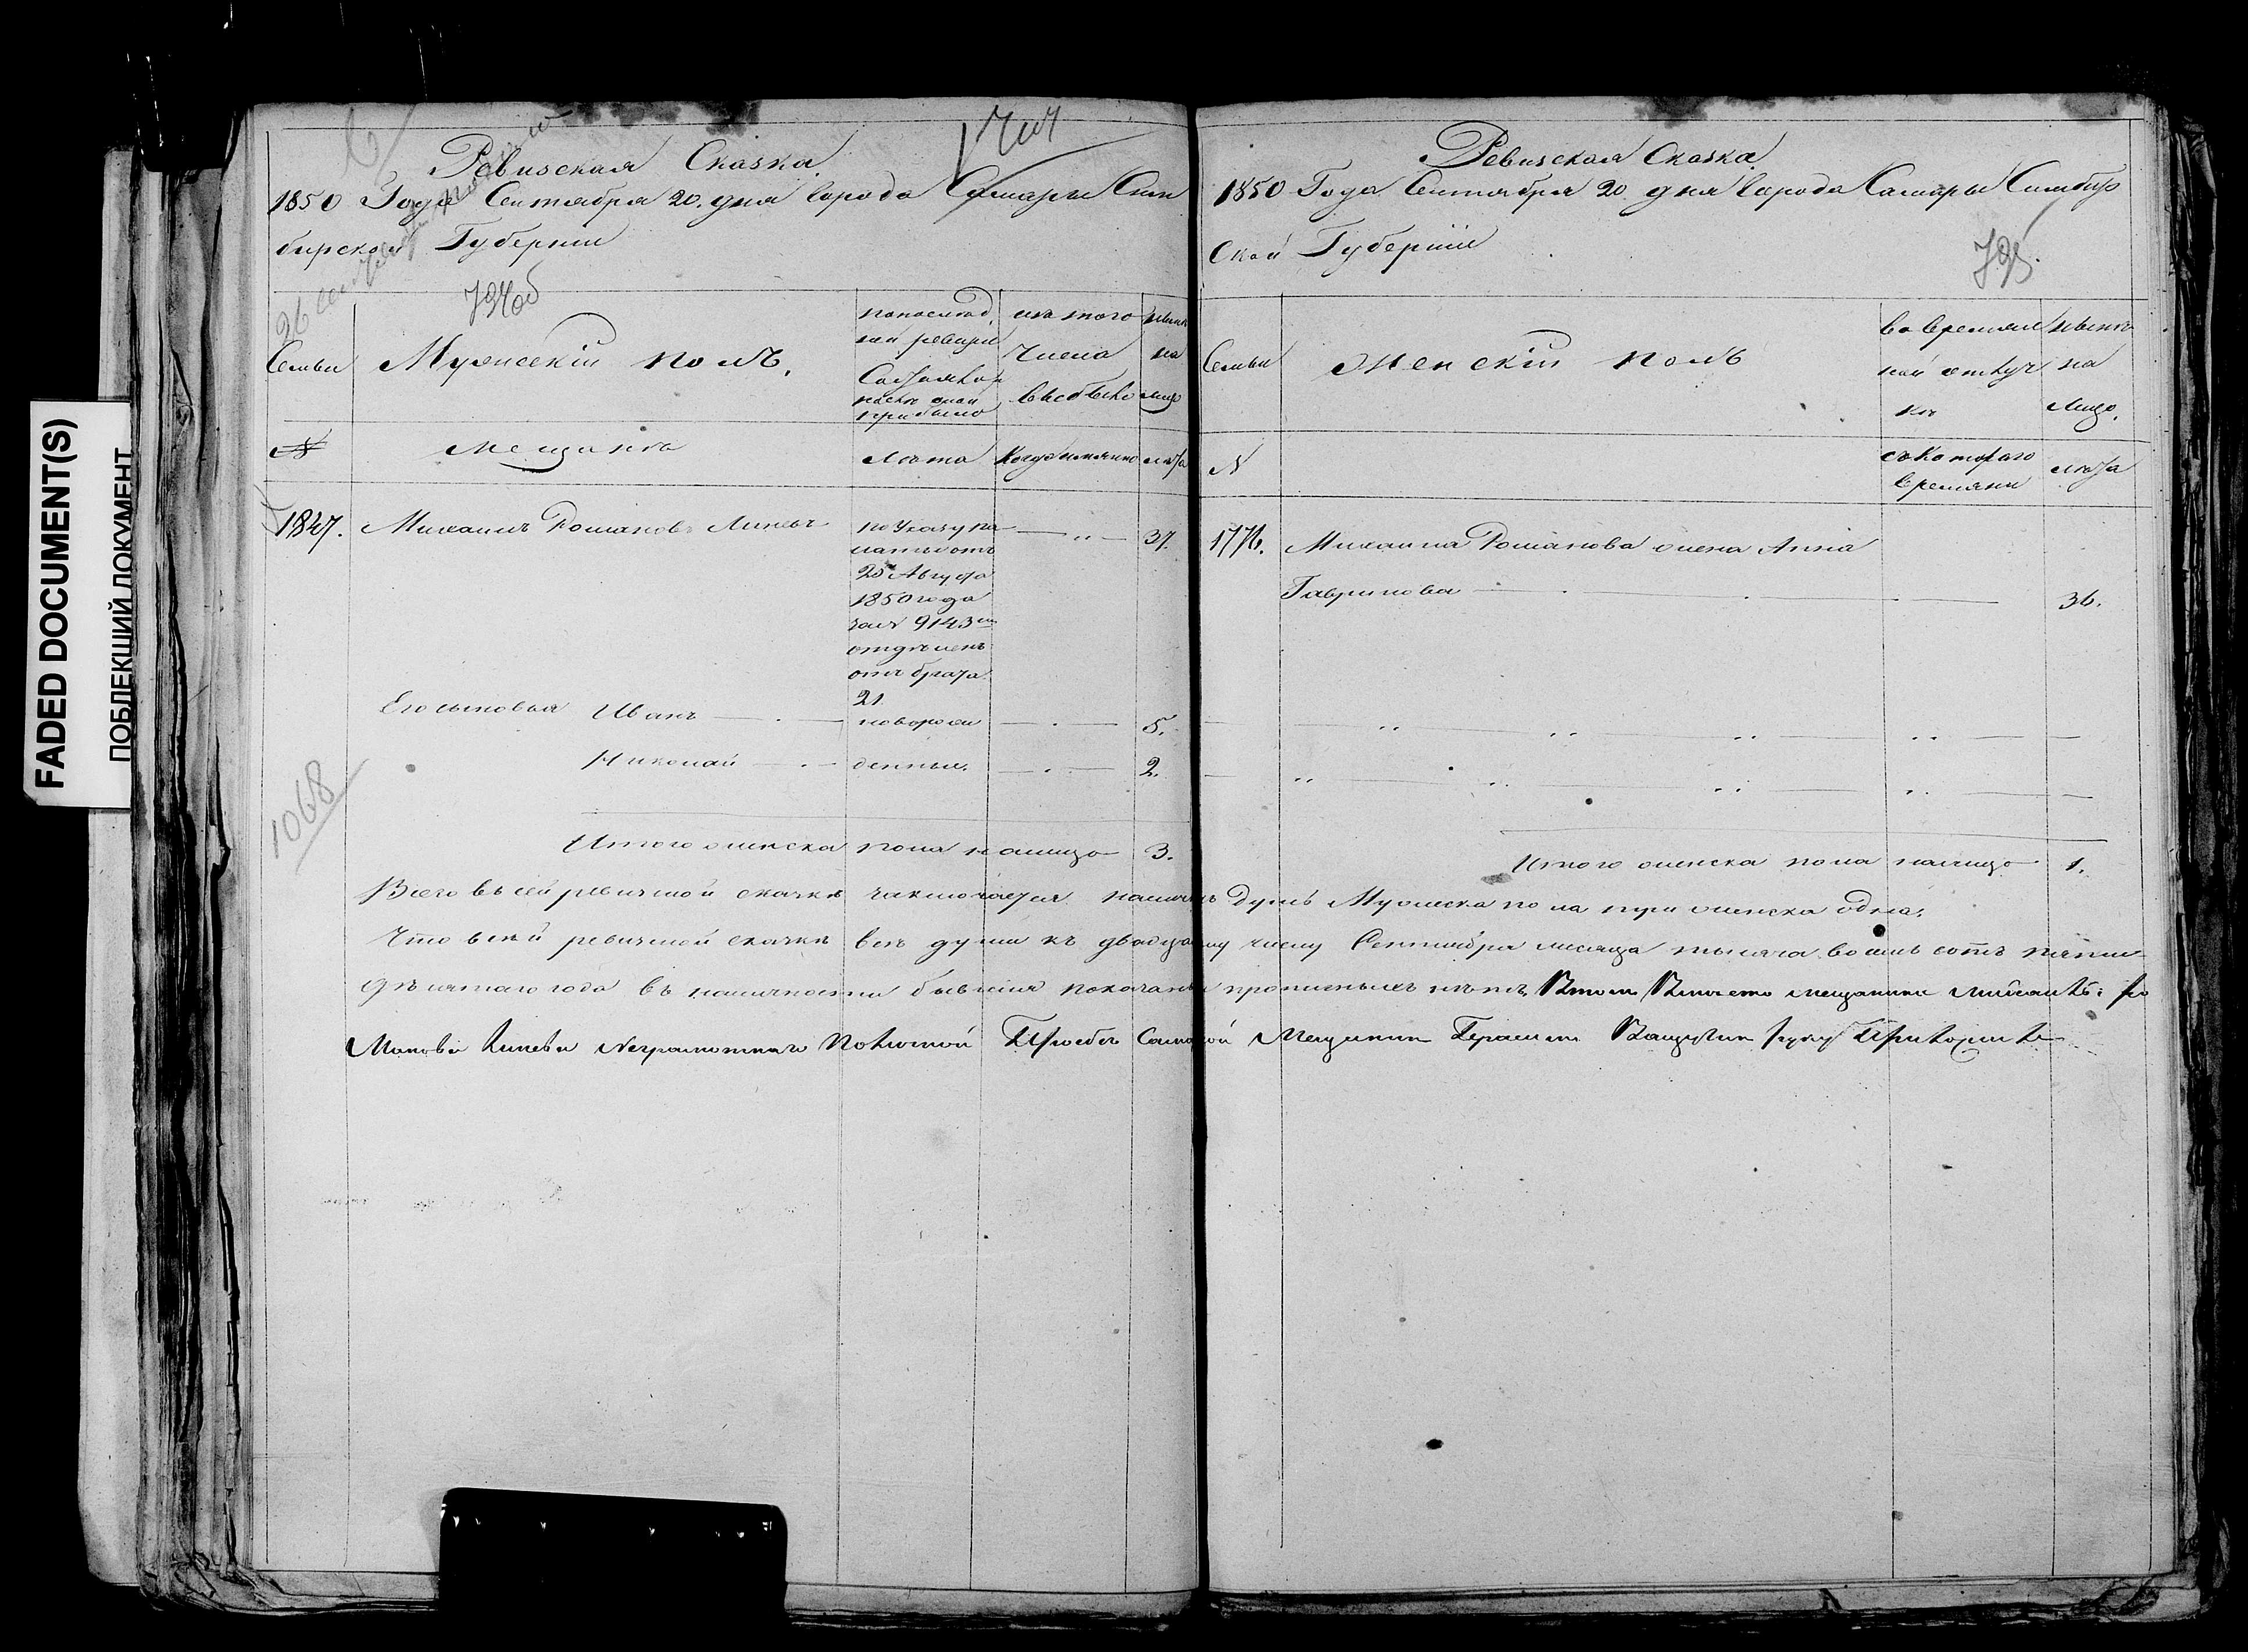 FADED DOCUMENT(S)
ПОБЛЕКШИЙ ДОКУМЕНТ
Ревизская Сказка.
1850 Года Сентября 20. дня Города Самары Сим
бирской Губернии
794об
Семьи
Мужескій полъ.
по послѣд
ней ревизіи
Состояло и
послѣ оной
прибыло
изъ того
числа
выбыло
нынѣ
на
лицо
№
мещанѣ
лѣта
Когда имянно
лѣта
1847.
Михаилъ Романовъ Линевъ
по Указу па
латы отъ
25 Августа
1850 года
за № 9143м
отдѣленъ
отъ брата.
21.
37.
Его сыновья Иванъ
новорож
5.
Николай
денные.
2.
1068
Итого женска пола на лицо 3.
Ревизская Сказка
1850 Года Сентября 20. дня Города Самары Симбир
Ской Губерніи
795.
Семьи
Женскій полъ
во времян
ной отлуч
кѣ
нынѣ
на
лицо.
N
съ Котораго
времяни
лѣта
1776.
Михаила Романова жена Анна
Гаврилова
36.
Итого женска пола налицо 1.
Всего въ сей ревизской сказкѣ заключается наличныхъ душъ Мужеска пола три женска одна.
Что в сей ревизской сказкѣ всѣ души къ двадцатому числу Сентября месяца тысяча восемь сотъ пятьи
десятаго года въ наличности бывшія показаны прописныхъ нѣтъ, Втом Вместо мещанина Михаила Ро
Манова Линева Неграмотнаго поЕличной Просьбѣ Самарской Мещанин Герасим руку Приложилъ